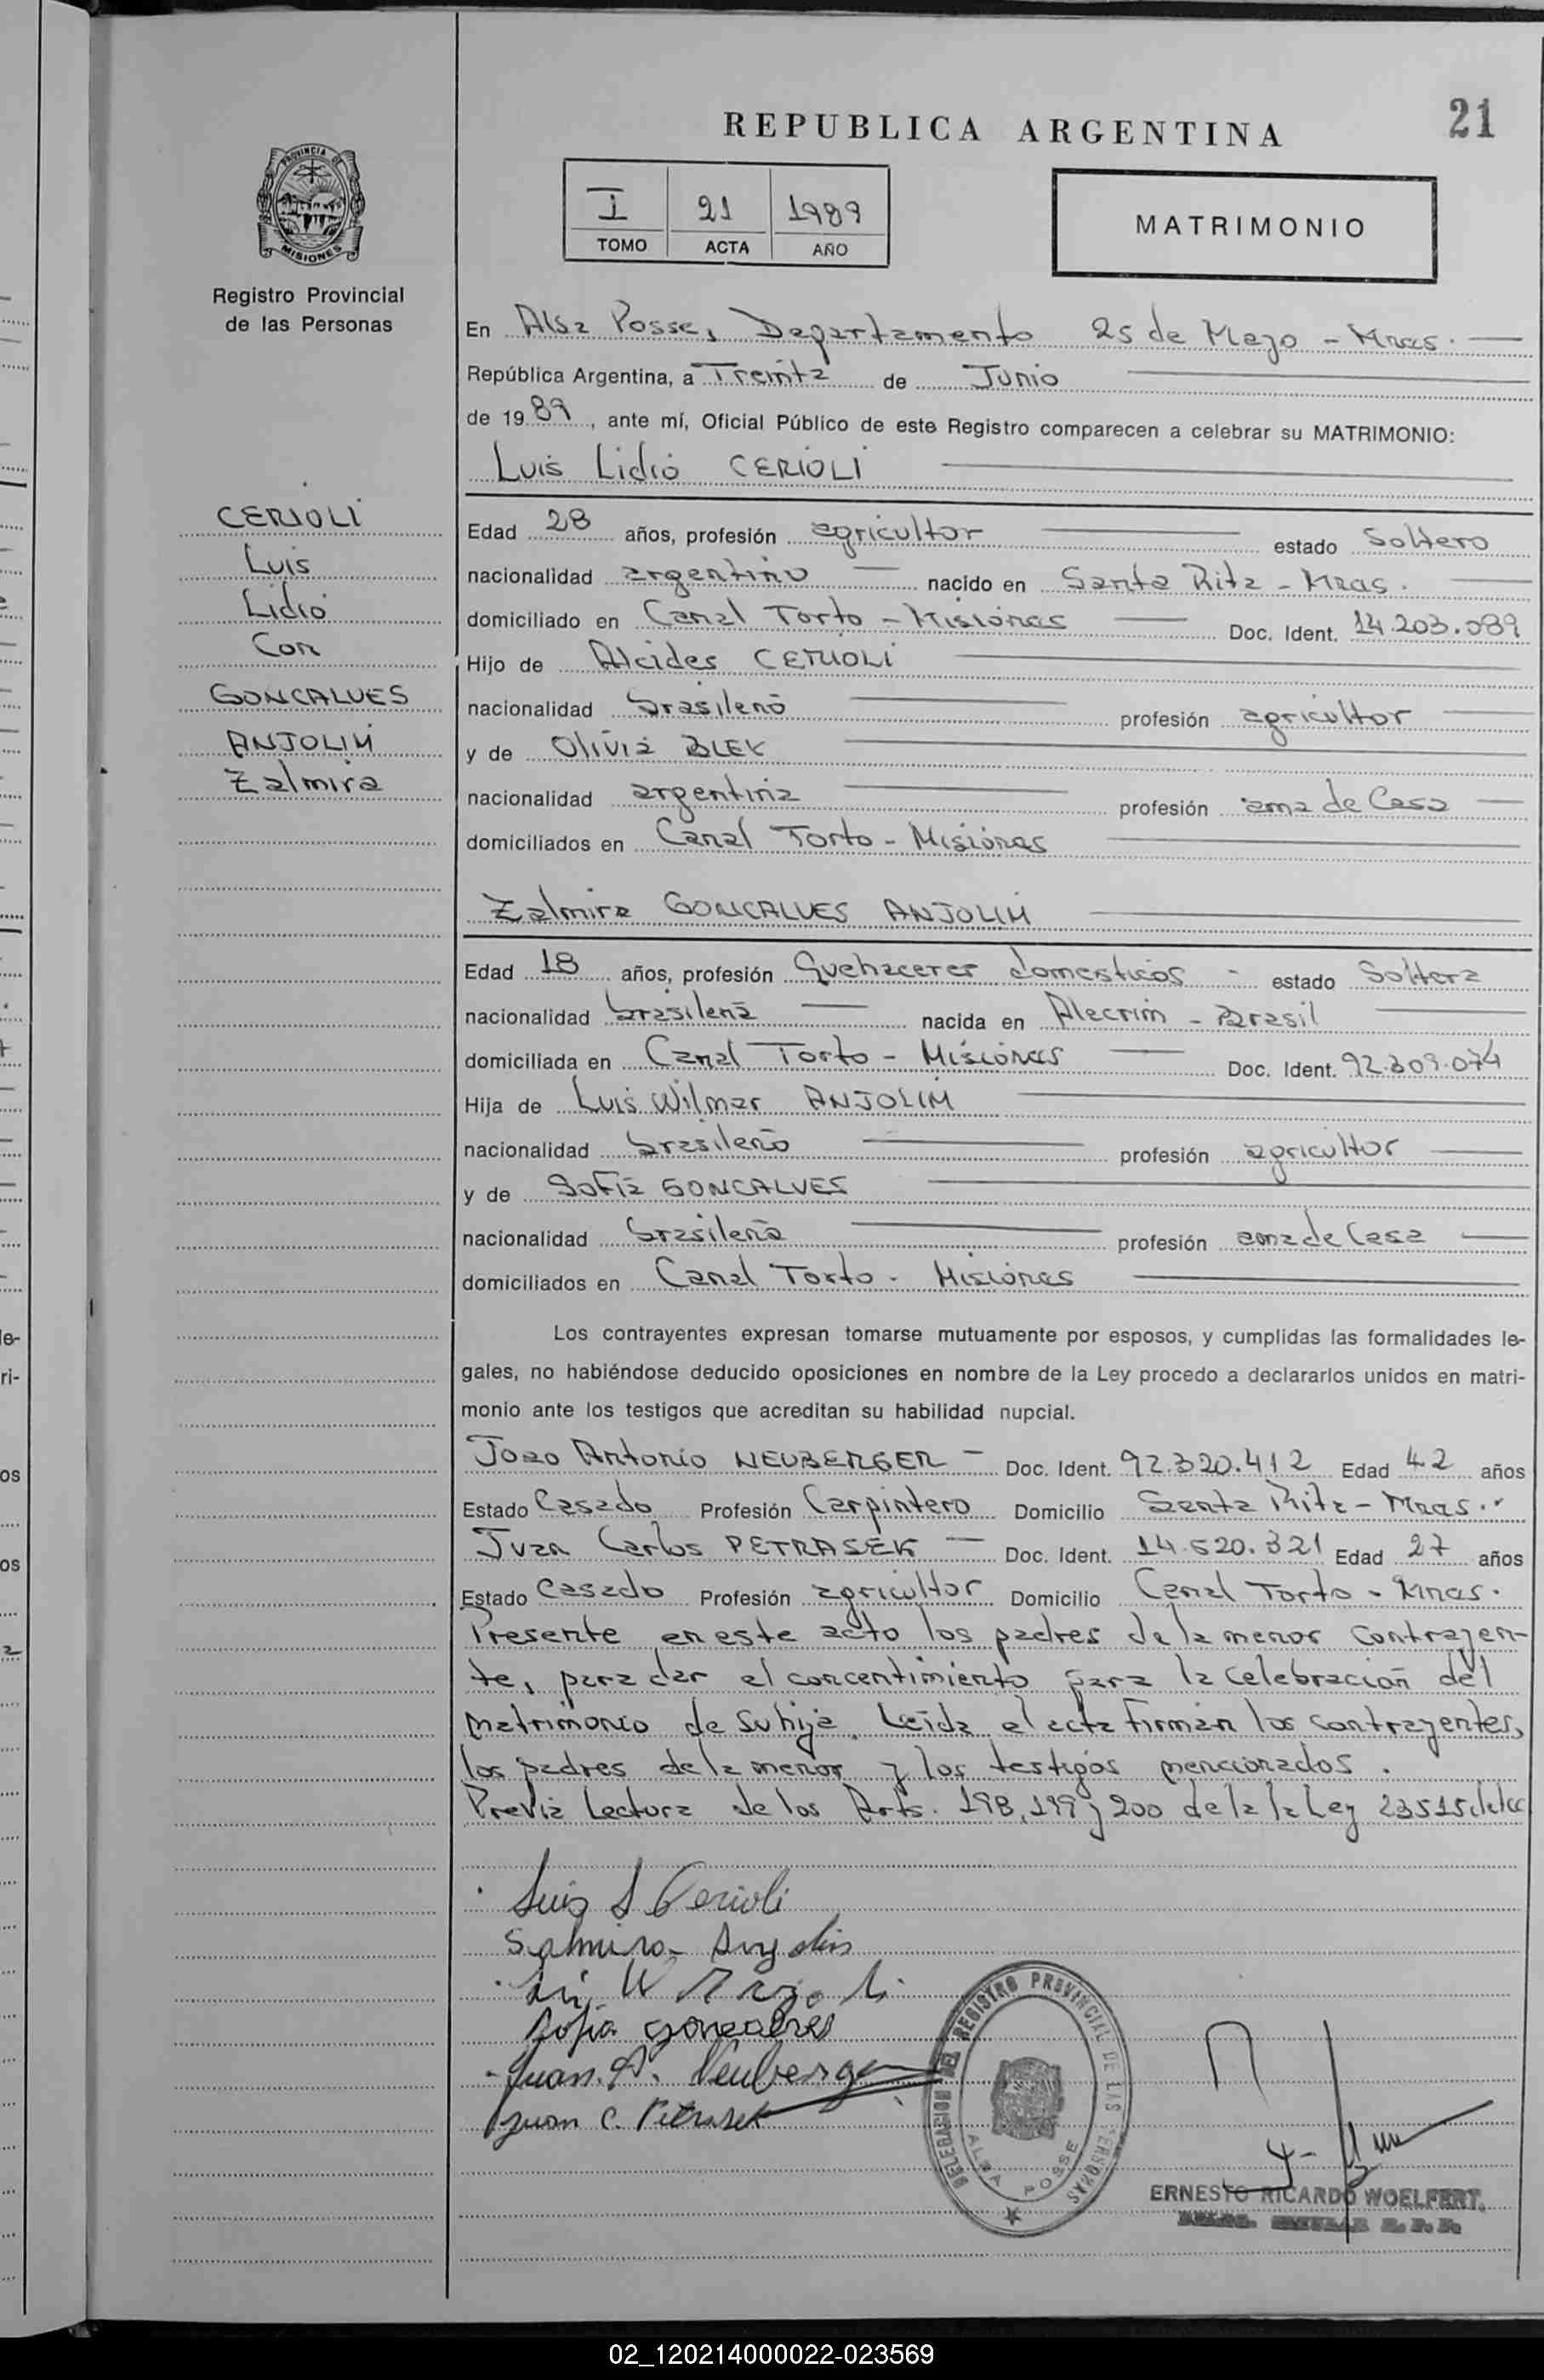 REPUBLICA ARGENTINA
21
PROVINCIA DE
MISIONES
Registro Provincial
de las Personas
I 21 1989
TOMO ACTA AÑO
MATRIMONIO
En Alba Posse, Departamento 25 de Mayo - Mnes.
República Argentina, a Treinta de Junio
de 1989, ante mí, Oficial Público de este Registro comparecen a celebrar su MATRIMONIO:
Luis Lidio CERIOLI
CERIOLI
Luis
Lidio
Con
GONCALVES
ANJOLIM
Zalmira
Edad 28 años, profesión agricultor estado Soltero
nacionalidad argentino nacido en Santa Rita - Mnes.
domiciliado en Canal Torto - Misiones Doc. Ident. 14.203.089
Hijo de Alcides CERIOLI
nacionalidad brasileño profesión agricultor
y de Olivia BLEK
nacionalidad argentina profesión ama de Casa
domiciliados en Canal Torto - Misiones
Zalmira GONCALVES ANJOLIM
Edad 18 años, profesión Quehaceres domesticos - estado Soltera
nacionalidad brasileña nacida en Alecrim - Brasil
domiciliada en Canal Torto - Misiones Doc. Ident. 92.309.074
Hija de Luis Wilmar ANJOLIM
nacionalidad brasileño profesión agricultor
y de Sofia GONCALVES
nacionalidad brasileña profesión ama de Casa
domiciliados en Canal Torto - Misiones
Los contrayentes expresan tomarse mutuamente por esposos, y cumplidas las formalidades le-
gales, no habiéndose deducido oposiciones en nombre de la Ley procedo a declararlos unidos en matri-
monio ante los testigos que acreditan su habilidad nupcial.
Joao Antonio NEUBERGER - Doc. Ident. 92.320.412 Edad 42 años
Estado Casado Profesión Carpintero Domicilio Santa Rita - Mnes.
Juan Carlos PETRASEK - Doc. Ident. 14.620.321 Edad 27 años
Estado Casado Profesión agricultor Domicilio Canal Torto - Mnes.
Presente en este acto los padres de la menor Contrayen-
te, para dar el concentimiento para la Celebración del
Matrimonio de su hija. Leida el acta Firman los Contrayentes,
los padres de la menor y los testigos mencionados.
Previa Lectura de los Arts. 198, 199 y 200 de la la Ley 23515 del CC
Luis L Cerioli
Salmira Anjolin
W
Sofia goncalves
Juan. A. Neuberger
Juan C. Petrasek
DELEGACION DEL REGISTRO PROVINCIAL DE LAS PERSONAS
ALBA POSSE
ERNESTO RICARDO WOELFERT
02_120214000022-023569